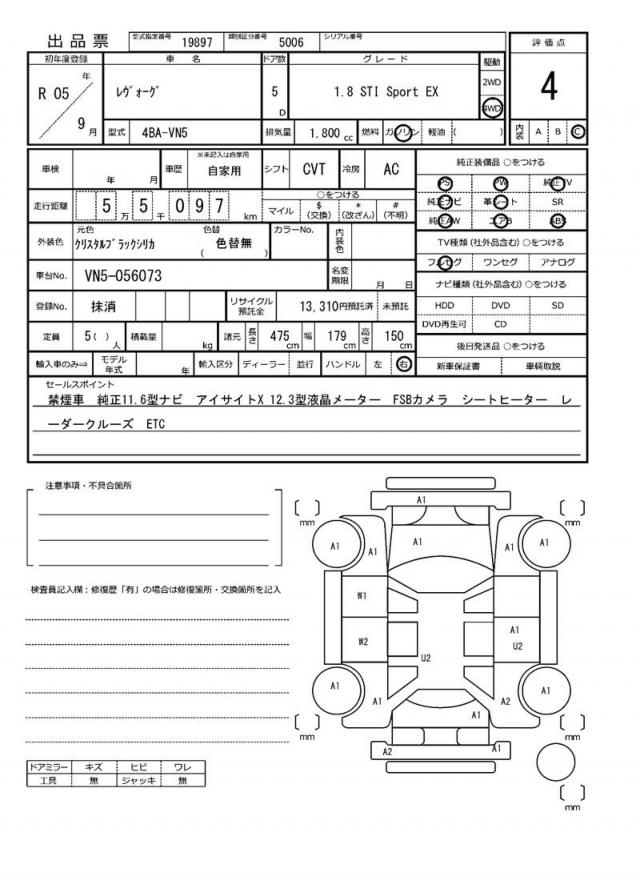 出品票 型式指定番号 19897 類別区分番号 5006 シリアル番号
評価点
初年度登録 車名 ドア数 グレード 駆動
R 05 年 9 月 ﾚｳﾞｫｰｸﾞ 5 D 1.8 STI Sport EX 2WD 4WD 4
型式 4BA-VN5 排気量 1,800 cc 燃料 ガソリン 軽油 ( ) 内装 A B C
車検 年 月 車歴 ※未記入は自家用 自家用 シフト CVT 冷房 AC 純正装備品 ○をつける
PS PW 純正TV
走行距離 5 万 5 千 0 9 7 km ○をつける 純正ナビ 革シート SR
マイル $ (交換) * (改ざん) # (不明) 純正AW エアB ABS
外装色 元色 ｸﾘｽﾀﾙﾌﾞﾗｯｸｼﾘｶ 色替 ( 色替無 ) カラーNo. 内装色 TV種類 (社外品含む) ○をつける
フルセグ ワンセグ アナログ
車台No. VN5-056073 名変期限 月 日 ナビ種類 (社外品含む) ○をつける
登録No. 抹消 リサイクル預託金 13,310円預託済 未預託 HDD DVD SD
DVD再生可 CD
定員 5( ) 人 積載量 kg 諸元 長さ 475 cm 幅 179 cm 高さ 150 cm 後日発送品 ○をつける
輸入車のみ⇒ モデル年式 年 輸入区分 ディーラー 並行 ハンドル 左 右 新車保証書 車輌取説
セールスポイント
禁煙車 純正11.6型ナビ アイサイトX 12.3型液晶メーター FSBカメラ シートヒーター レ
ーダークルーズ ETC
注意事項・不具合箇所
検査員記入欄：修復歴「有」の場合は修復箇所・交換箇所を記入
ドアミラー キズ ヒビ ワレ
工具 無 ジャッキ 無
A1
mm mm
A1 A1 A1 A1 A1
W1
A1
W2 U2
U2
A1 A1 A2 A1
A1
mm mm
A2 A1
mm